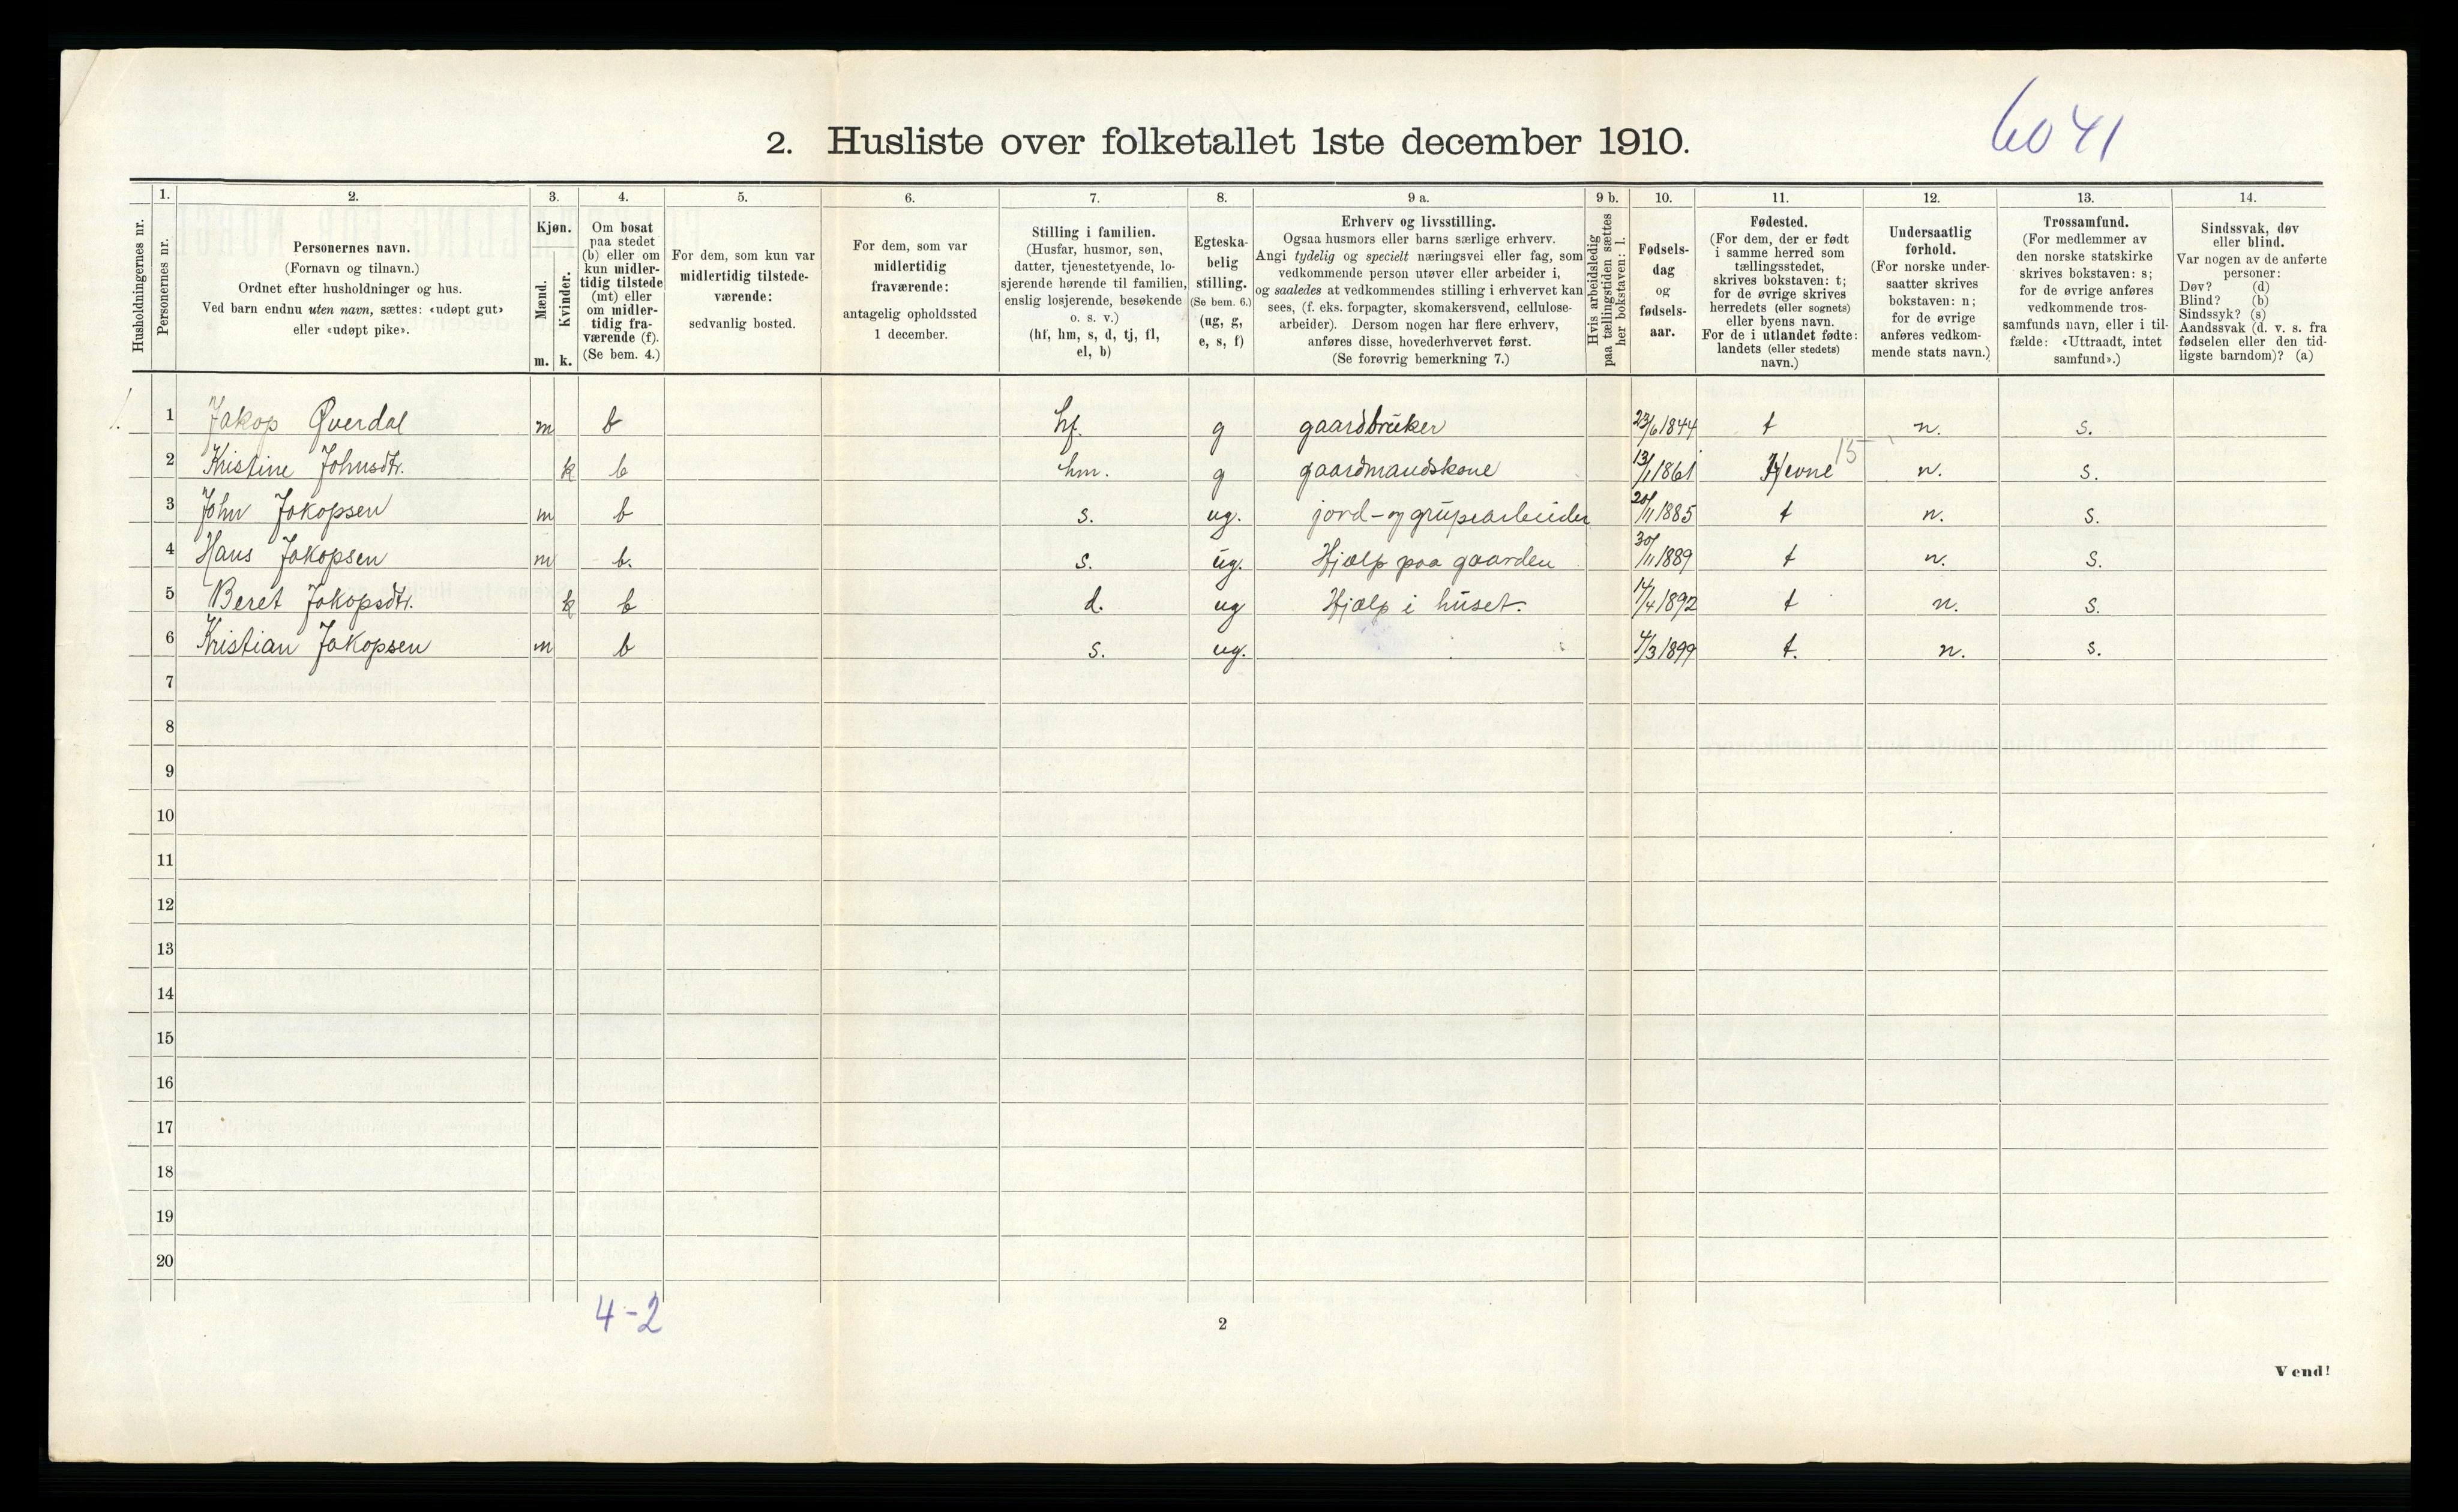 6041
2. Husliste over folketallet 1ste december 1910.
Husholdningernes nr.
1.
Personernes nr.
2.
Personernes navn.
(Fornavn og tilnavn.)
Ordnet efter husholdninger og hus.
Ved barn endnu uten navn, sættes: «udøpt gut»
eller «udøpt pike».
3.
Kjøn.
Mænd.
Kvinder.
m. k.
4.
Om bosat
paa stedet
(b) eller om
kun midler-
tidig tilstede
(mt) eller
om midler-
tidig fra-
værende (f).
(Se bem. 4.)
5.
For dem, som kun var
midlertidig tilstede-
værende:
sedvanlig bosted.
6.
For dem, som var
midlertidig
fraværende:
antagelig opholdssted
1 december.
7.
Stilling i familien.
(Husfar, husmor, søn,
datter, tjenestetyende, lo-
sjerende hørende til familien,
enslig losjerende, besøkende
o. s. v.)
(hf, hm, s, d, tj, fl,
el, b)
8.
Egteska-
belig
stilling.
(Se bem. 6.)
(ug, g,
e, s, f)
9 a.
Erhverv og livsstilling.
Ogsaa husmors eller barns særlige erhverv.
Angi tydelig og specielt næringsvei eller fag, som
vedkommende person utøver eller arbeider i,
og saaledes at vedkommendes stilling i erhvervet kan
sees, (f. eks. forpagter, skomakersvend, cellulose-
arbeider). Dersom nogen har flere erhverv,
anføres disse, hovederhvervet først.
(Se forøvrig bemerkning 7.)
9 b.
Hvis arbeidsledig
paa tællingstiden sættes
her bokstaven: l.
10.
Fødsels-
dag
og
fødsels-
aar.
11.
Fødested.
(For dem, der er født
i samme herred som
tællingsstedet,
skrives bokstaven: t;
for de øvrige skrives
herredets (eller sognets)
eller byens navn.
For de i utlandet fødte:
landets (eller stedets)
navn.)
12.
Undersaatlig
forhold.
(For norske under-
saatter skrives
bokstaven: n;
for de øvrige
anføres vedkom-
mende stats navn.)
13.
Trossamfund.
(For medlemmer av
den norske statskirke
skrives bokstaven: s;
for de øvrige anføres
vedkommende tros-
samfunds navn, eller i til-
fælde: «Uttraadt, intet
samfund».)
14.
Sindssvak, døv
eller blind.
Var nogen av de anførte
personer:
Døv? (d)
Blind? (b)
Sindssyk? (s)
Aandssvak (d. v. s. fra
fødselen eller den tid-
ligste barndom)? (a)
1. 1 Jakop Øverdal m b hf. g gaardbruker 23/6 1844 t n. s.
2 Kristine Johnsdtr. k b hm. g gaardmandskone 13/1 1861 Hevne 15 n. s.
3 John Jakopsen m b s. ug. jord- og grubearbeider 20/11 1885 t n. s.
4 Hans Jakopsen m b. s. ug. Hjælp paa gaarden 30/11 1889 t n. s.
5 Beret Jakopsdtr. k b d. ug Hjælp i huset. 14/4 1892 t n. s.
6 Kristian Jakopsen m b s. ug. 4/3 1899 t. n. s.
7
8
9
10
11
12
13
14
15
16
17
18
19
20
4-2
2
Vend!